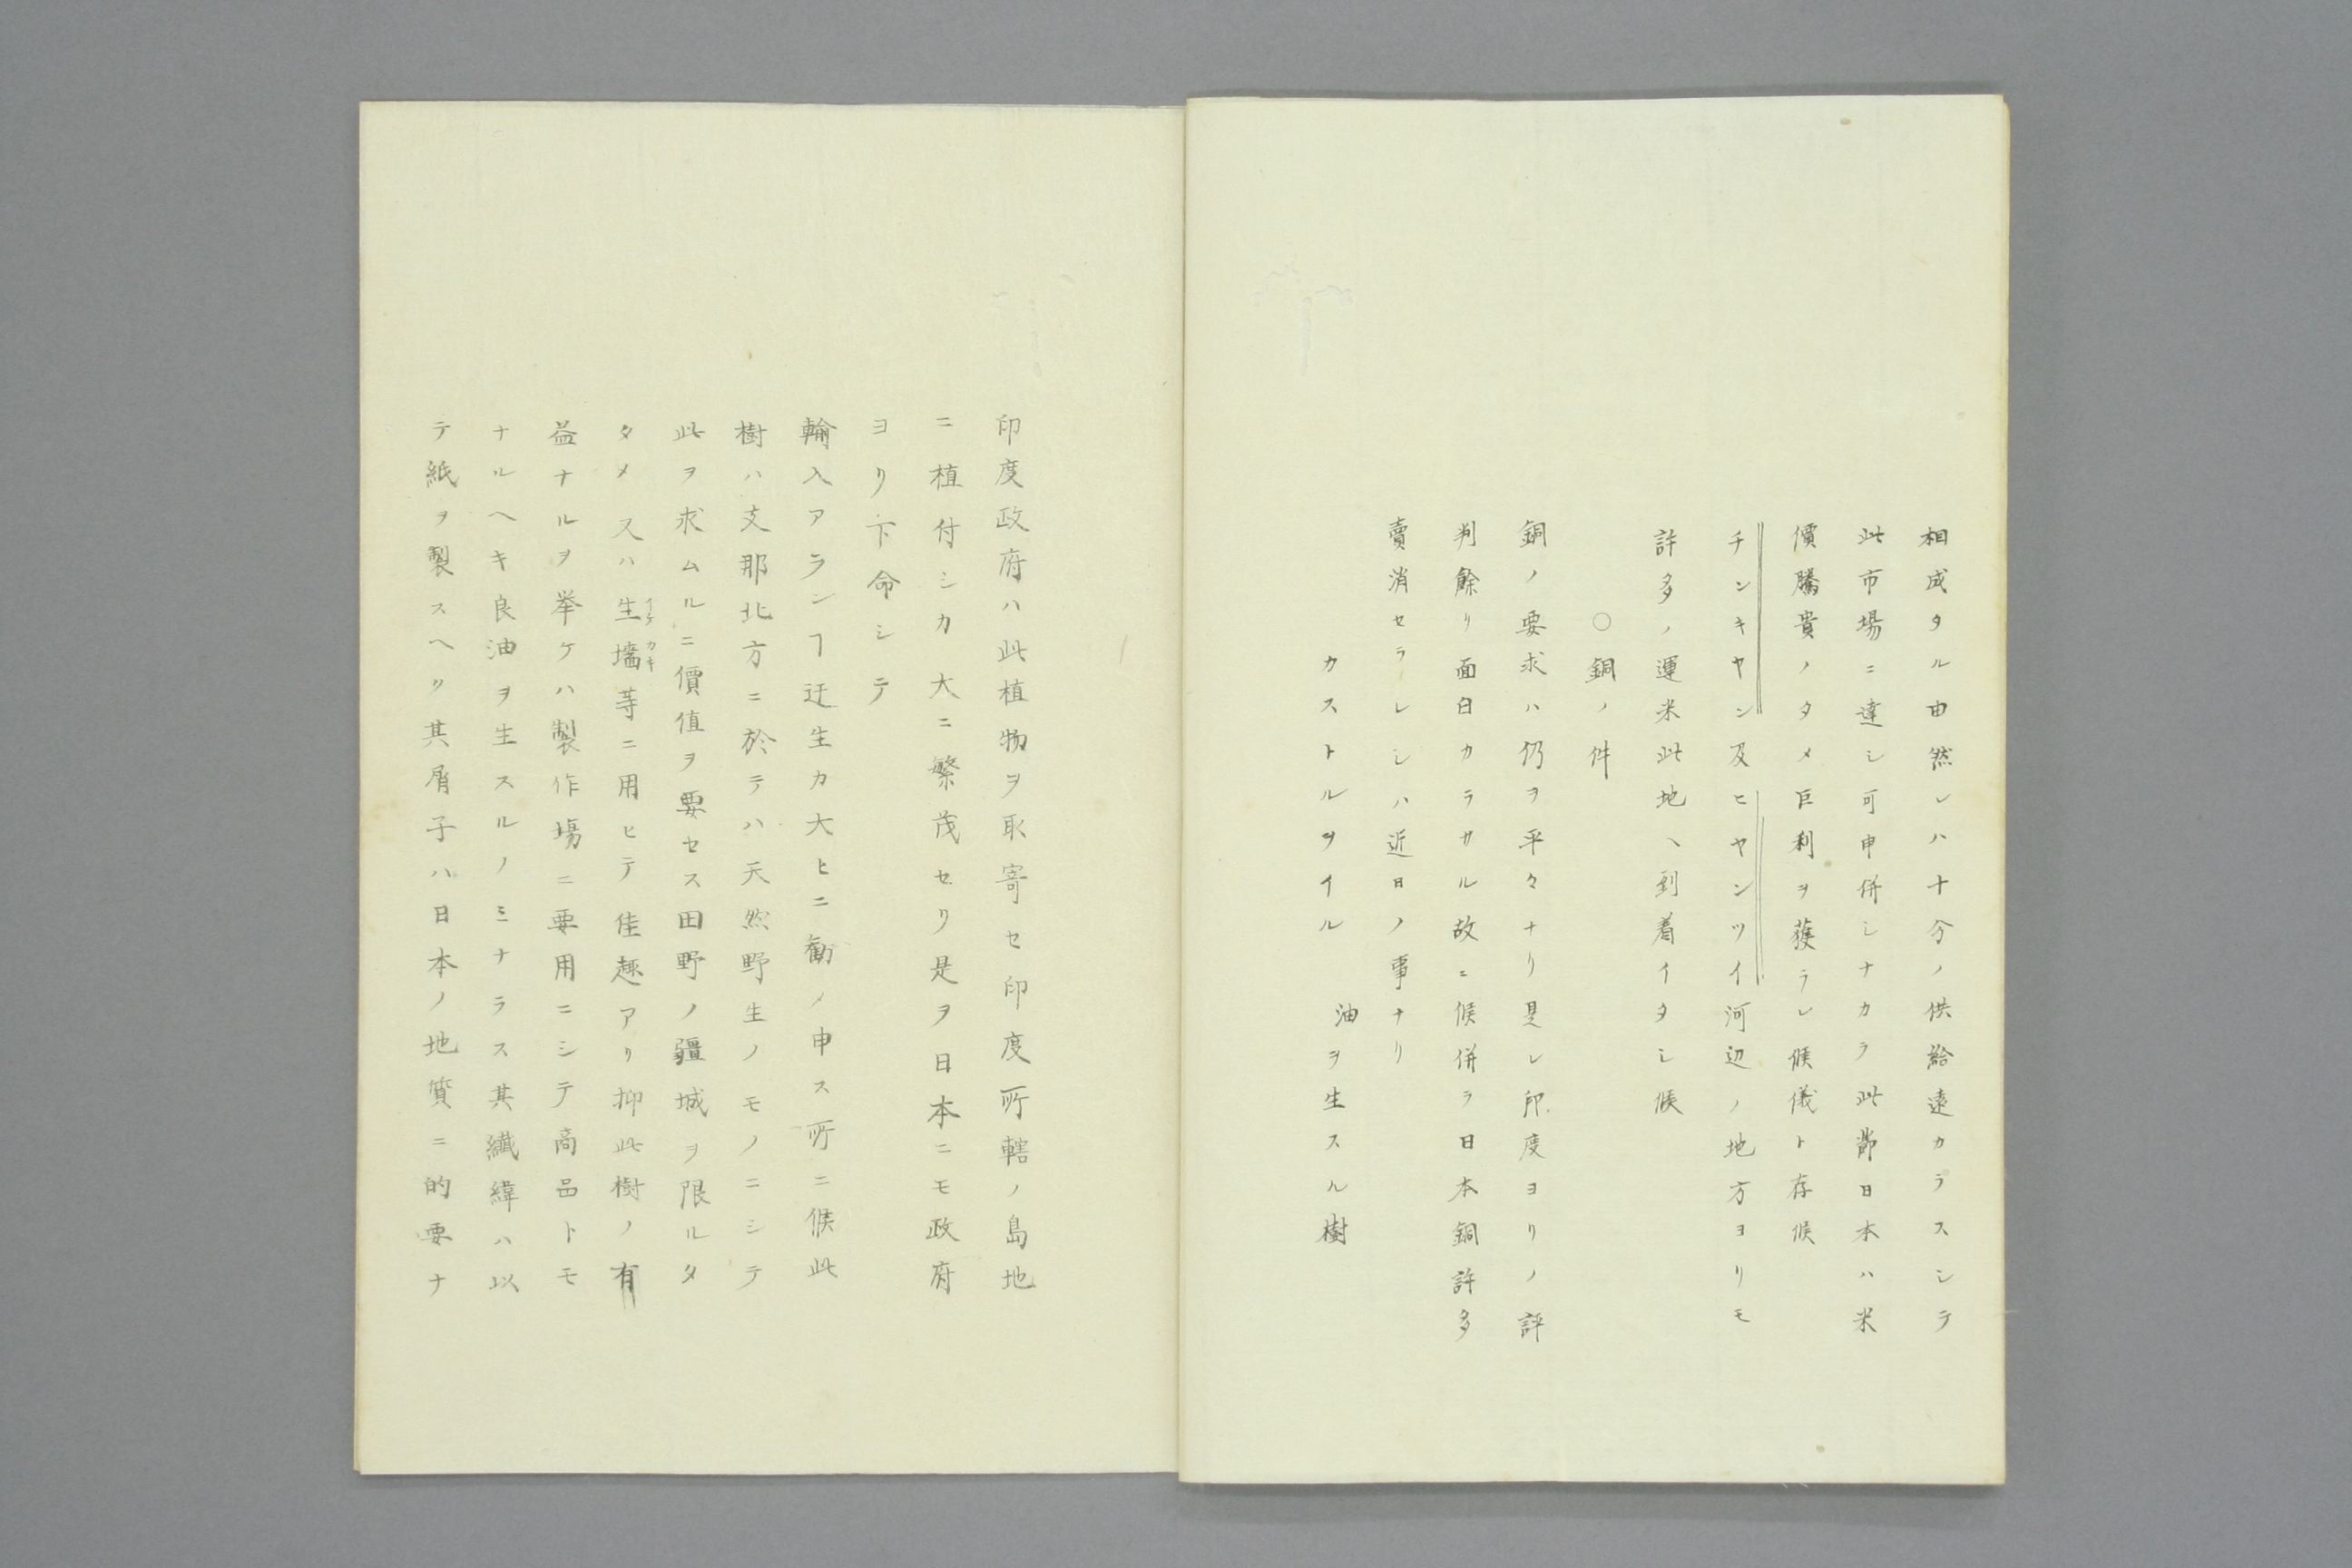 相成タル由然レハ十分ノ供給遠カラスシテ
此市場ニ達シ可申併シナカラ此節日本ハ米
價騰貴ノタメ巨利ヲ獲ラレ候儀ト存候
チンキヤン及ヒヤンツイ河辺ノ地方ヨリモ
許多ノ運米此地ヘ到着イタシ候
○銅ノ件
銅ノ要求ハ仍ヲ平々ナリ是レ印度ヨリノ評
判餘リ面白カラサル故ニ候併ラ日本銅許多
賣消セラレシハ近日ノ事ナリ
カストルヲイル 油ヲ生スル樹
印度政府ハ此植物ヲ取寄セ印度所轄ノ島地
ニ植付シカ大ニ繁茂セリ是ヲ日本ニモ政府
ヨリ下命シテ
輸入アランヿ迂生カ大ヒニ勧ノ申ス所ニ候此
樹ハ支那北方ニ於テハ天然野生ノモノニシテ
此ヲ求ムルニ價値ヲ要セス田野ノ疆城ヲ限ルタ
タメ又ハ生墻イケカキ等ニ用ヒテ佳趣アリ抑此樹ノ有
益ナルヲ挙ケハ製作場ニ要用ニシテ商品トモ
ナルヘキ良油ヲ生スルノミナラス其纎緯ハ以
テ紙ヲ製スヘク其屑子ハ日本ノ地質ニ的要ナ